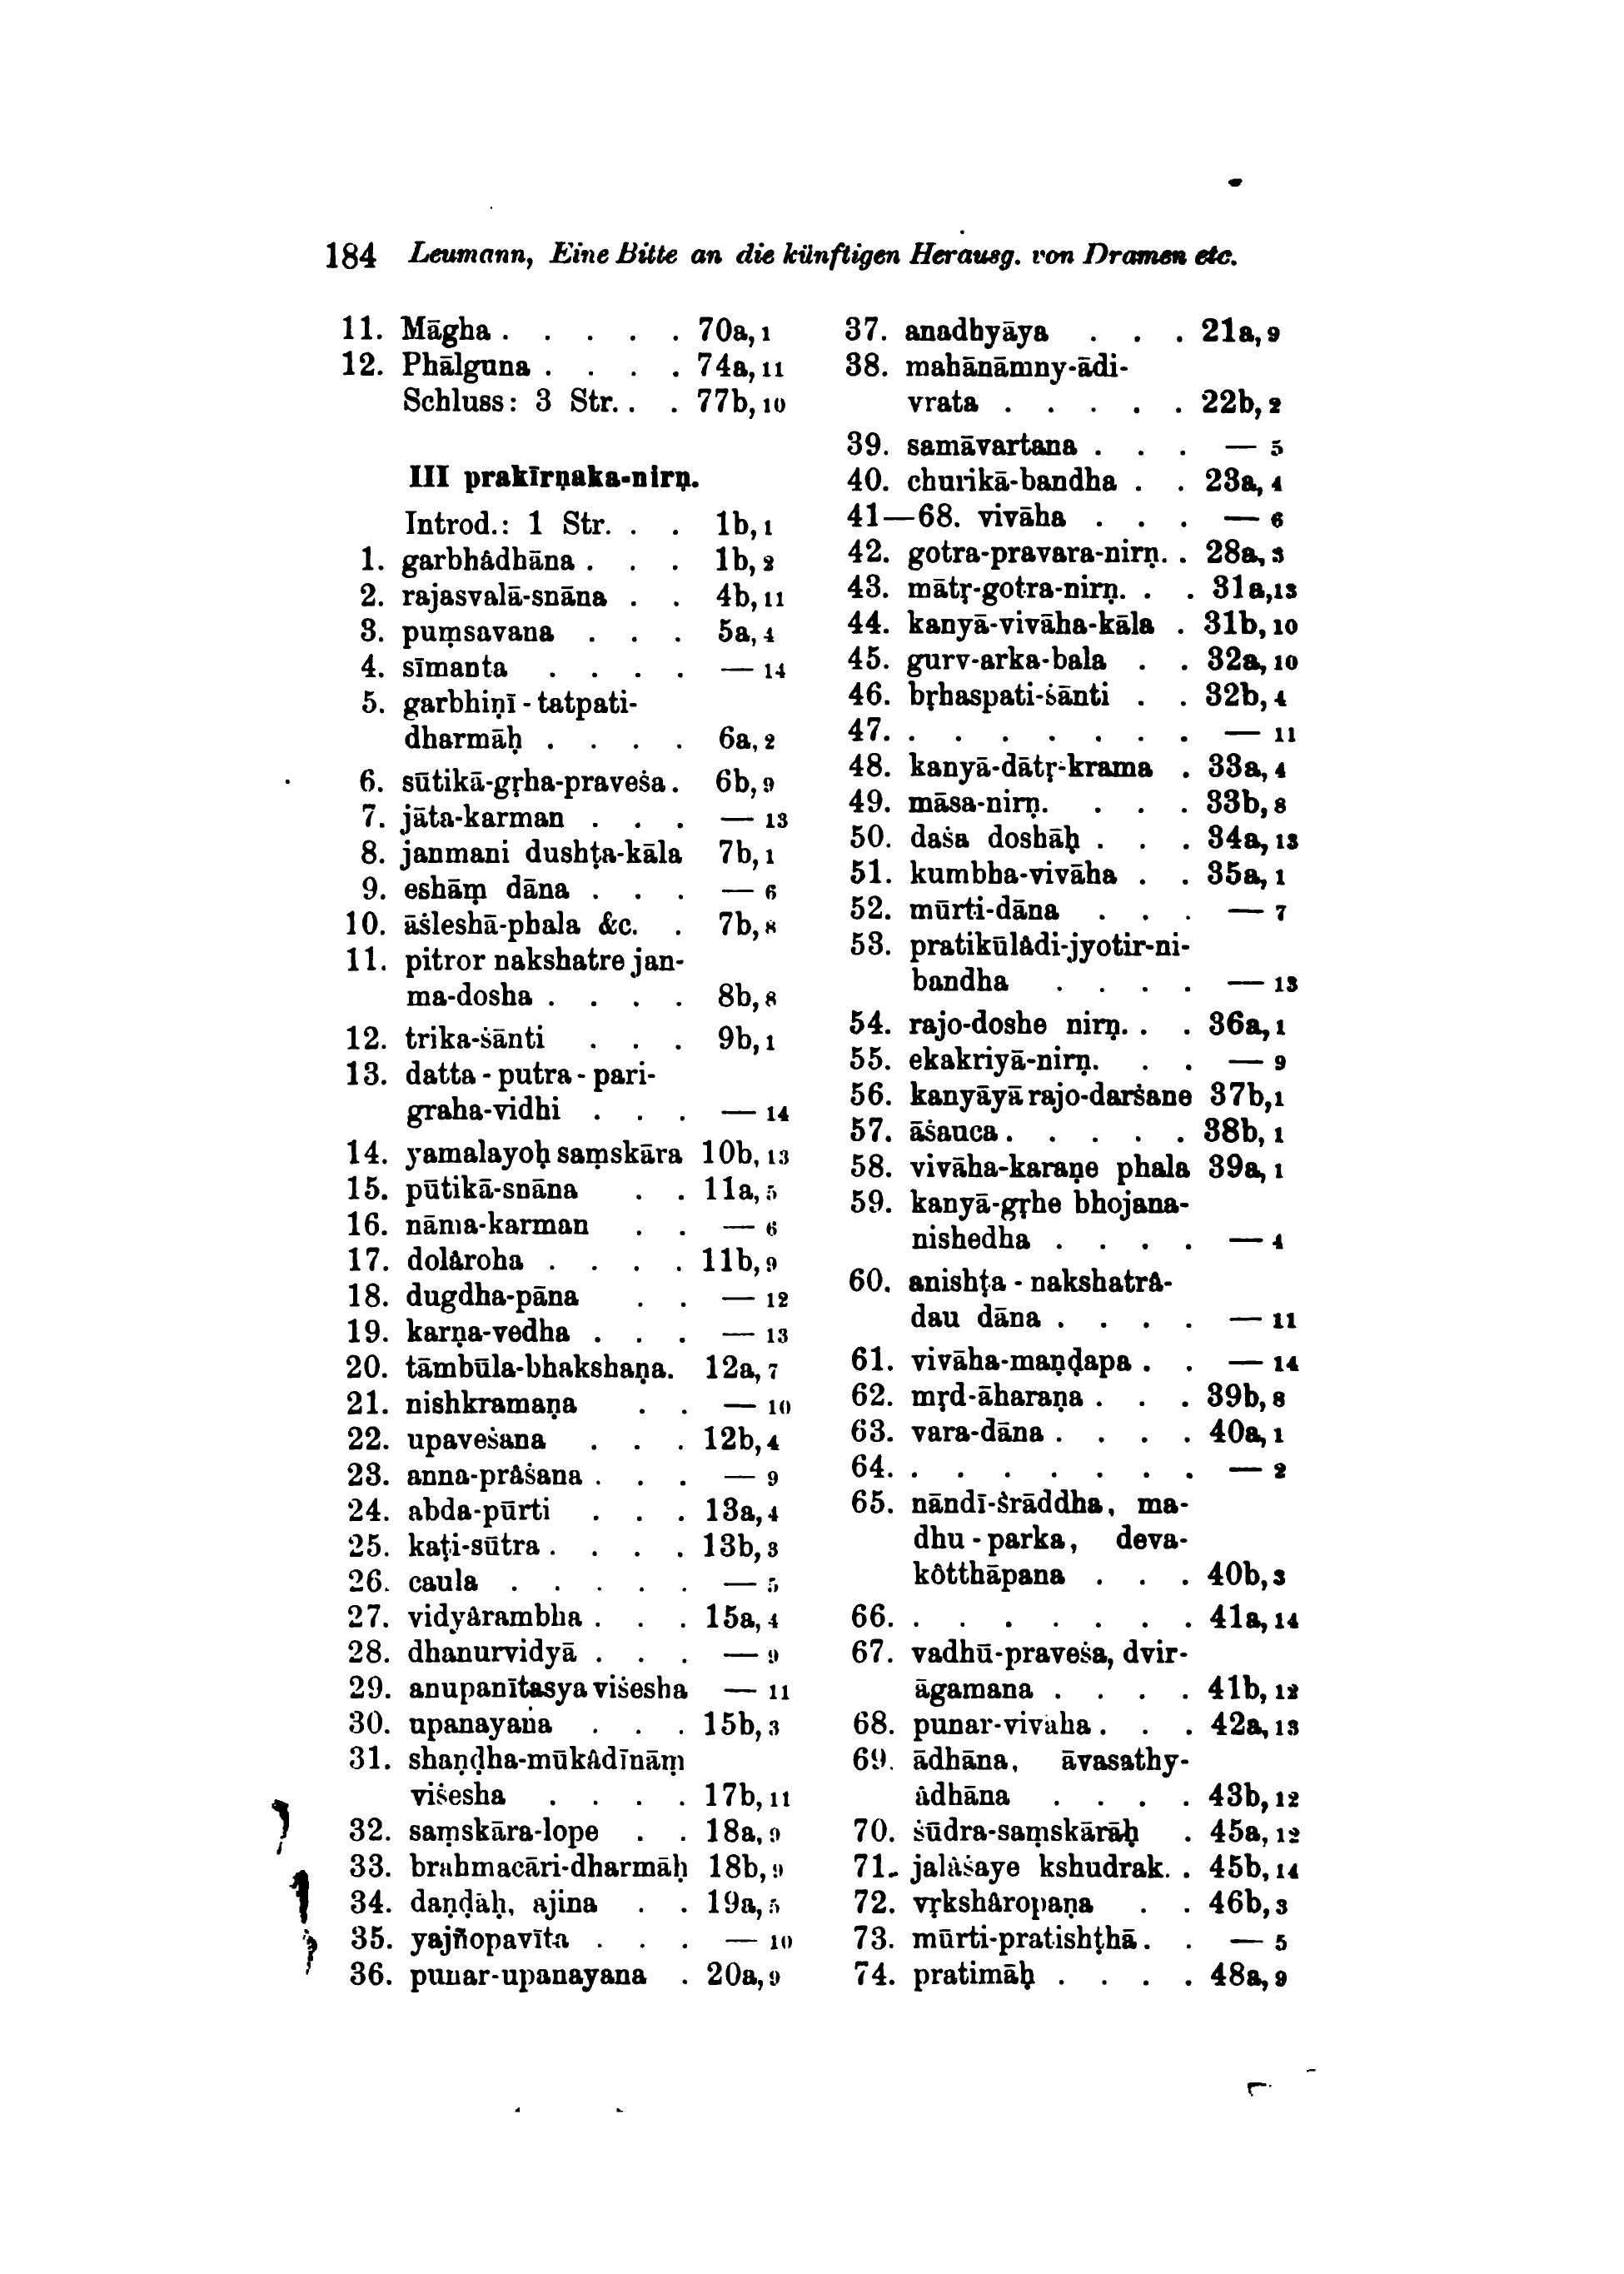 184 Leumann, Eine Bitte an die künftigen Herausg. von Dramen etc.
11. Māgha . . . . . 70a, 1
12. Phālguna . . . . 74a, 11
Schluss: 3 Str. . . 77b, 10
III prakīrṇaka-nirṇ.
Introd.: 1 Str. . . 1b, 1
1. garbhâdhāna . . . 1b, 2
2. rajasvalā-snāna . . 4b, 11
3. puṃsavana . . . 5a, 4
4. sīmanta . . . . — 14
5. garbhiṇī-tatpati-
dharmāḥ . . . . 6a, 2
6. sūtikā-gṛha-praveśa. 6b, 9
7. jāta-karman . . . — 13
8. janmani dushṭa-kāla 7b, 1
9. eshāṃ dāna . . . — 6
10. āśleshā-phala &c. . 7b, 8
11. pitror nakshatre jan-
ma-dosha . . . . 8b, 8
12. trika-śānti . . . 9b, 1
13. datta-putra-pari-
graha-vidhi . . . — 14
14. yamalayoḥ saṃskāra 10b, 13
15. pūtikā-snāna . . 11a, 5
16. nāma-karman . . — 6
17. dolâroha . . . . 11b, 9
18. dugdha-pāna . . — 12
19. karṇa-vedha . . . — 13
20. tāmbūla-bhakshaṇa. 12a, 7
21. nishkramaṇa . . — 10
22. upaveśana . . . 12b, 4
23. anna-prâśana . . . — 9
24. abda-pūrti . . . 13a, 4
25. kaṭi-sūtra . . . . 13b, 3
26. caula . . . . . — 5
27. vidyârambha . . . 15a, 4
28. dhanurvidyā . . . — 9
29. anupanītasya viśesha — 11
30. upanayana . . . 15b, 3
31. shaṇḍha-mūkâdīnāṃ
viśesha . . . . 17b, 11
32. saṃskāra-lope . . 18a, 9
33. brahmacāri-dharmāḥ 18b, 9
34. daṇḍāḥ, ajina . . 19a, 5
35. yajñopavīta . . . — 10
36. punar-upanayana . 20a, 9
37. anadhyāya . . . 21a, 9
38. mahānāmny-ādi-
vrata . . . . . 22b, 2
39. samāvartana . . . — 5
40. churikā-bandha . . 23a, 4
41—68. vivāha . . . — 6
42. gotra-pravara-nirṇ. . 28a, 3
43. mātṛ-gotra-nirṇ. . . 31a, 13
44. kanyā-vivāha-kāla . 31b, 10
45. gurv-arka-bala . . 32a, 10
46. bṛhaspati-śānti . . 32b, 4
47. . . . . . . . — 11
48. kanyā-dātṛ-krama . 33a, 4
49. māsa-nirṇ. . . . 33b, 8
50. daśa doshāḥ . . . 34a, 13
51. kumbha-vivāha . . 35a, 1
52. mūrti-dāna . . . — 7
53. pratikūlâdi-jyotir-ni-
bandha . . . . — 13
54. rajo-doshe nirṇ. . . 36a, 1
55. ekakriyā-nirṇ. . . — 9
56. kanyāyā rajo-darśane 37b, 1
57. āśauca . . . . . 38b, 1
58. vivāha-karaṇe phala 39a, 1
59. kanyā-gṛhe bhojana-
nishedha . . . . — 4
60. anishṭa-nakshatrâ-
dau dāna . . . . — 11
61. vivāha-maṇḍapa . . — 14
62. mṛd-āharaṇa . . . 39b, 8
63. vara-dāna . . . . 40a, 1
64. . . . . . . . — 2
65. nāndī-śrāddha, ma-
dhu-parka, deva-
kôtthāpana . . . 40b, 3
66. . . . . . . . 41a, 14
67. vadhū-praveśa, dvir-
āgamana . . . . 41b, 12
68. punar-vivāha . . . 42a, 13
69. ādhāna, āvasathy-
âdhāna . . . . 43b, 12
70. śūdra-saṃskārāḥ . 45a, 12
71. jalâśaye kshudrak. . 45b, 14
72. vṛkshâropaṇa . . 46b, 3
73. mūrti-pratishṭhā . . — 5
74. pratimāḥ . . . . 48a, 9